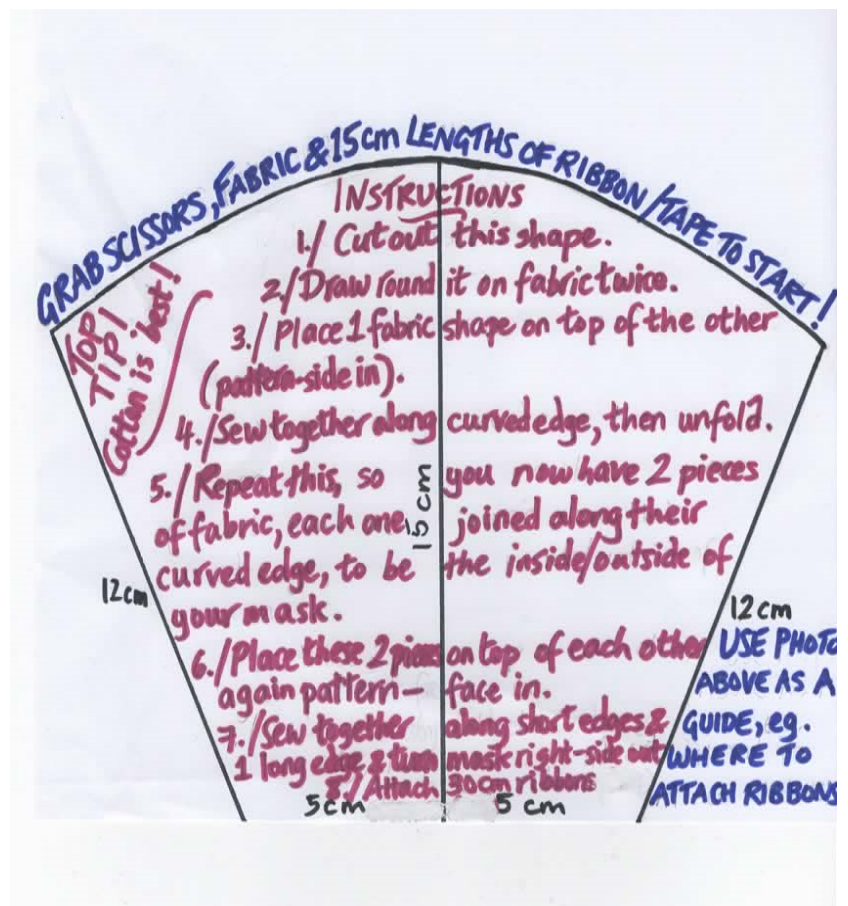 GRAB SCISSORS, FABRIC & 15cm LENGTHS OF RIBBON/TAPE TO START!
INSTRUCTIONS
1./ Cut out this shape.
2/ Draw round it on fabric twice.
3./ Place 1 fabric shape on top of the other
(pattern-side in).
TOP
TIP!
Cotton is best!
4./Sew together along curved edge, then unfold.
5./Repeat this, so you now have 2 pieces
of fabric, each one joined along their
curved edge, to be the inside/outside of
your mask.
15cm
12cm
12cm
6./Place these 2 pieces on top of each other
again pattern- face in.
7./Sew together along short edges &
1 long edge & turn mask right-side out
8./Attach 30cm ribbons
5cm 5 cm
USE PHOTO
ABOVE AS A
GUIDE, eg.
WHERE TO
ATTACH RIBBONS